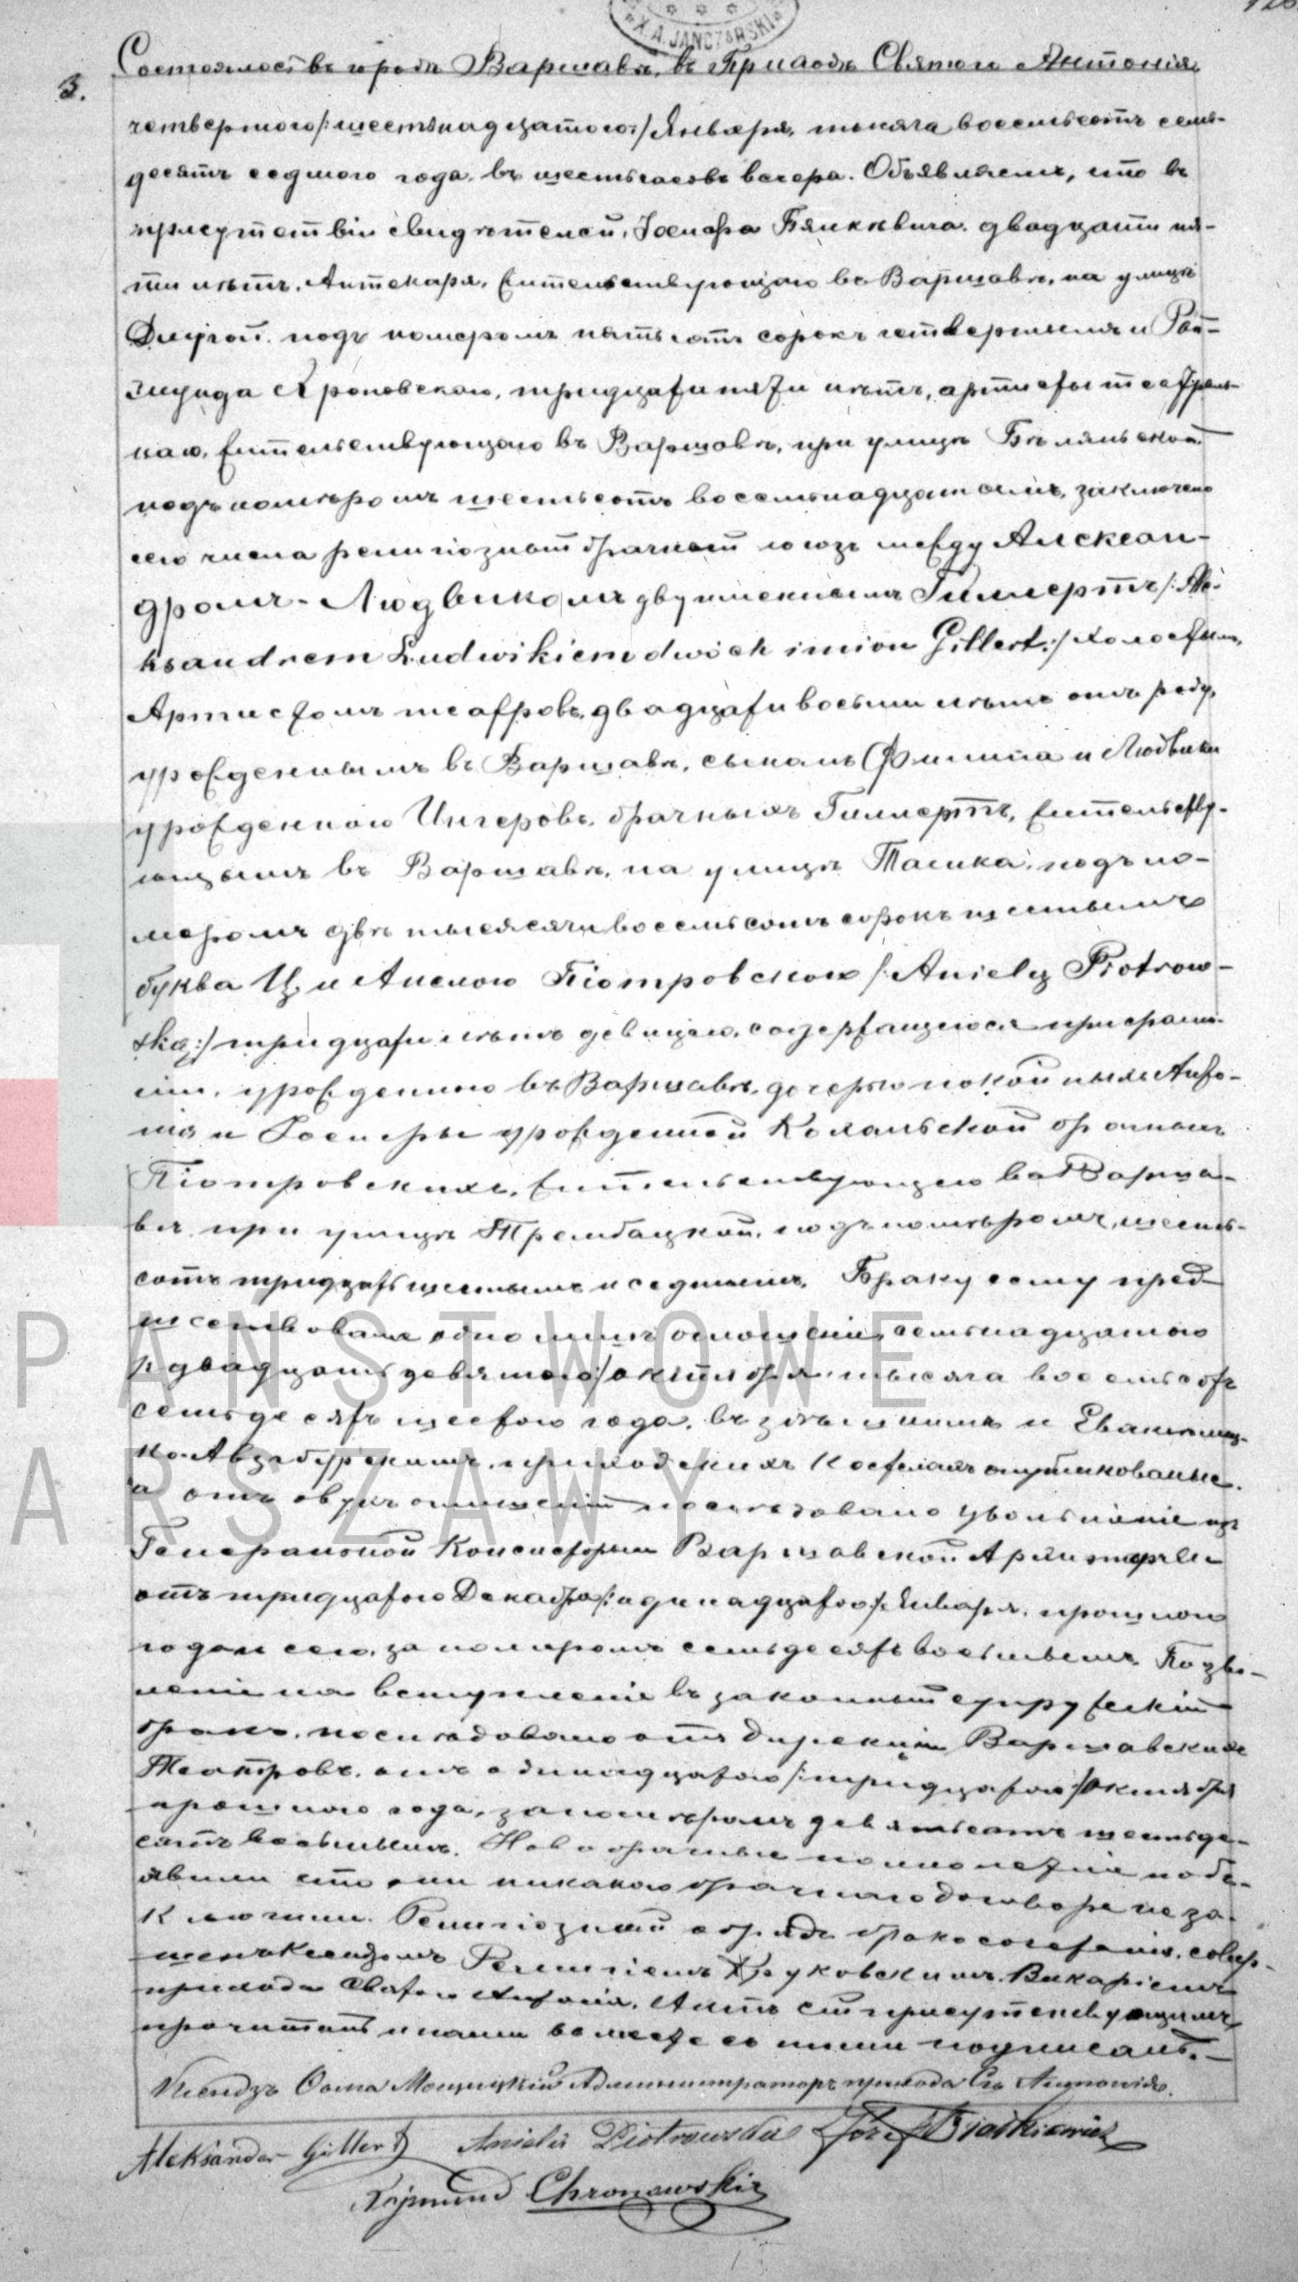 X. A. JANCZARSKI
3.
Состоялось въ городѣ Варшавѣ, въ Приходѣ Святого Антонія,
четвертого /:шестьнадцатого:/ Января, тысяча восемьсотъ семь-
десятъ седмого года, въ шесть часовъ вечера. Объявляемъ, что въ
присутствіи свидѣтелей, Іосифа Бялкѣвича, двадцати пя-
ти лѣтъ, Аптекаря, жительствующаго въ Варшавѣ, на улицѣ
Длугой, подъ номеромъ пятьсотъ сорокъ четвертымъ и
Хроновскаго, тридцати пяти лѣтъ, артисты театраль-
наго, жительствующаго въ Варшавѣ, при улицѣ Бѣляньской
подъ номѣромъ шестьсотъ восемьнадцатымъ, заключено
сего числа религіозный брачный союзъ между Алексан-
дромъ-Людвикомъ двуименнымъ Гиллертъ /:Ale-
ksandrem Ludwikiem dwóch imion Gillert:/ холостымъ,
Артистомъ театровъ, двадцати восьми лѣтъ отъ роду,
урожденнымъ въ Варшавѣ, сыномъ Филипа и Людвики
урожденной Унгеровъ, брачныхъ Гиллертъ, жительству-
ющымъ въ Варшавѣ, на улицѣ Тамка, подъ но-
меромъ двѣ тысясячи восемьсотъ сорокъ шестымъ
буква Ц, и Анелою Піотровскою /:Anielą Piotrow-
ską:/ тридцати лѣтъ дѣвицею, содержащеюся при
урожденною въ Варшавѣ, дочерью покойныхъ Анто-
нія и Іосифы урожденной брачныхъ
Піотровскихъ, жительствующею въ Варша-
вѣ, при улицѣ Трембацкой, подъ номѣромъ, шесть-
сотъ тридцать шестымъ и седмымъ. Браку сему пред-
шествовало одно оглошеніе, семьнадцатого
/:двадцать девятого:/ октября, тысяча восемьсотъ
семьдесятъ шестого года, въ здѣшнимъ и Евангелиц-
ко-Авзабурскимъ, приходскихъ костелахъ опубликованые.
а отъ двухъ оглошеній послѣдовало увольненіе изъ
Генеральной Консисторіи Варшавской
отъ тридцатого Декабря /:одинадцатого:/ Января, прошлого
года и сего, за номеромъ семьдесятъ восьмымъ. Позво-
леніе на вступленіе въ законный супружескій
бракъ, послѣдовало отъ Дирекціи Варшавскихъ
Театровъ, отъ одинадцатого /:тридцатого:/ Октября
прошлого года, за номѣромъ девятьсотъ шестьде-
сятъ восьмымъ. Новобрачные
явили что они никакого брачного договора не за-
ключили. Религіозный обрядъ бракосочетанія, совер-
шенъ Ксендзомъ Ремигіемъ Круковскимъ Викаріемъ
прихода Святого Антонія. Актъ сій присутствующимъ
прочитанъ и нами вмѣстѣ съ ними подписанъ.-
Ксендзъ Ѳома Мощицкій Администраторъ прихода Св Антонія.
Aleksander Gillert Aniela Piotrowska Józef Białkiewicz
Rajmund Chronowski